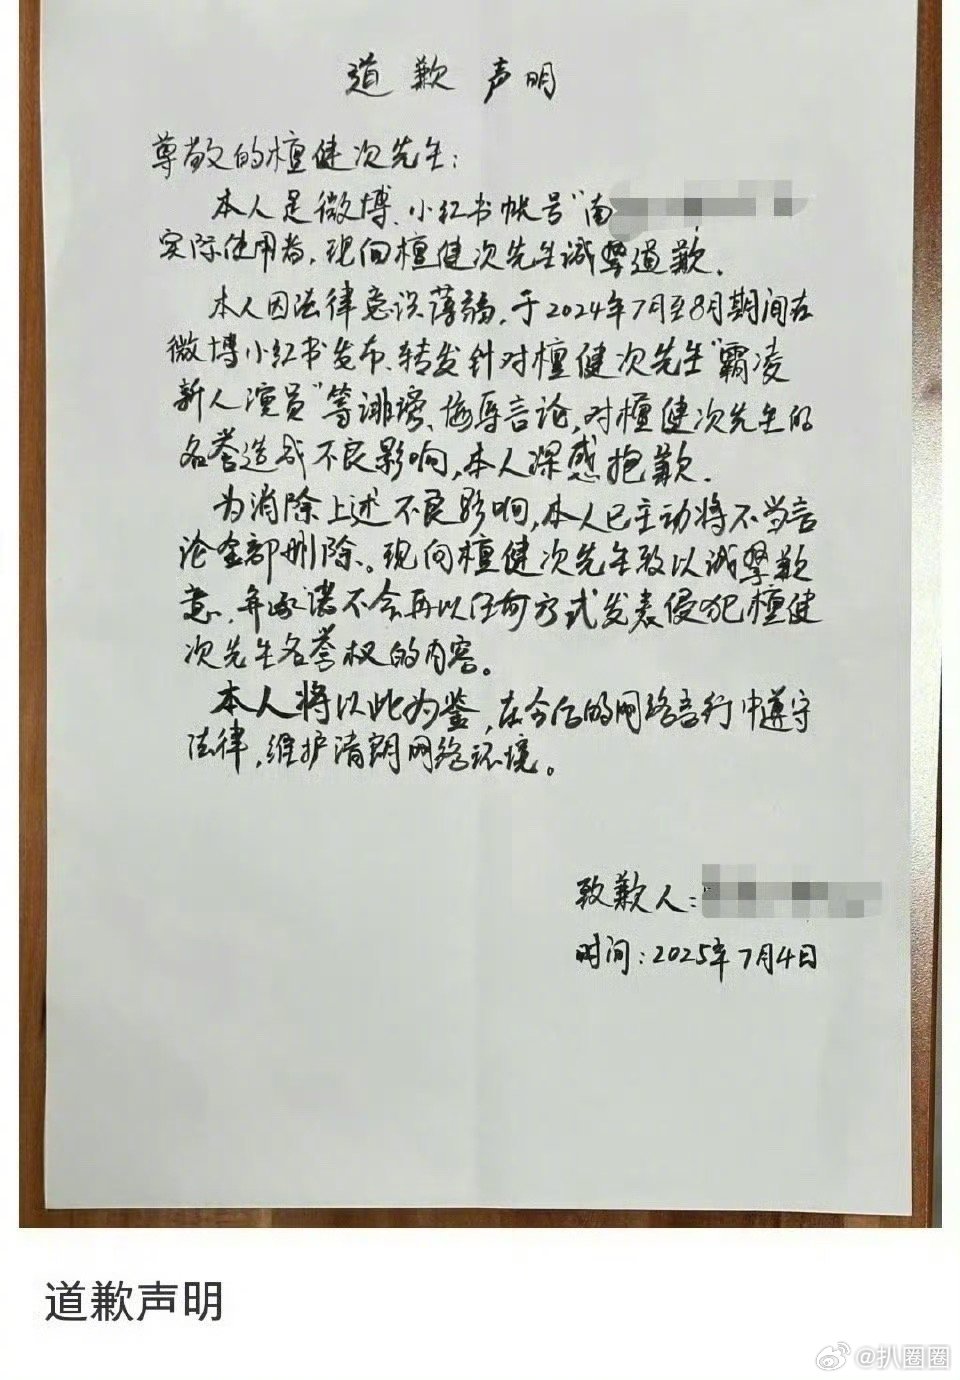 道歉声明
尊敬的檀健次先生：
本人是微博、小红书帐号“南
实际使用者，现向檀健次先生诚挚道歉.
本人因法律意识薄弱，于2024年7月至8月期间在
微博小红书发布、转发针对檀健次先生“霸凌
新人演员”等诽谤、侮辱言论，对檀健次先生的
名誉造成不良影响，本人深感抱歉.
为消除上述不良影响，本人已主动将不当言
论全部删除。现向檀健次先生致以诚挚歉
意，并承诺不会再以任何方式发表侵犯檀健
次先生名誉权的内容。
本人将以此为鉴，在今后的网络言行中遵守
法律，维护清朗网络环境。
致歉人：
时间：2025年7月4日
道歉声明
@扒圈圈